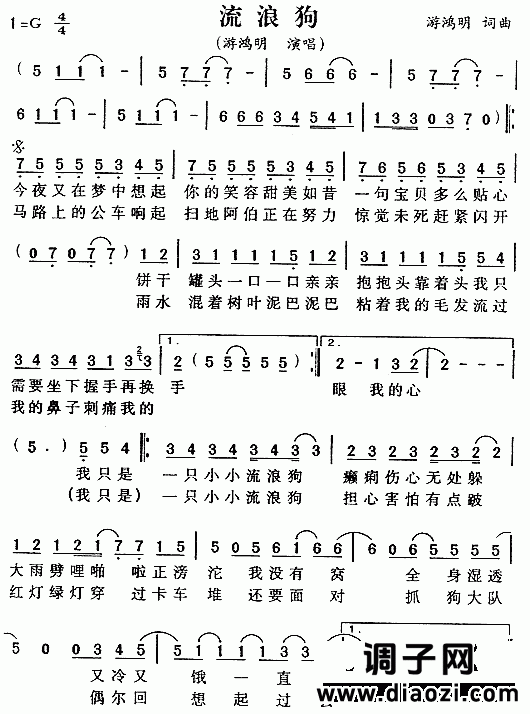 流浪狗
1=G 4/4
游鸿明 词曲
(游鸿明 演唱)
( 5 1 1 1 - | 5 7 7 7 - | 5 1 1 1 - | 5 7 7 7 -
6 1 1 1 - | 5 1 1 1 - | 6 6 6 3 4 5 4 1 | 1 3 3 0 3 7 0 )
7 5 5 5 5 3 4 5 | 7 5 5 5 5 3 4 5 | 7 6 5 6 5 3 4 5
今夜又在梦中想起 你的笑容甜美如昔 一句宝贝多么贴心
马路上的公车响起 扫地阿伯正在努力 惊觉未死赶紧闪开
( 0 7 0 7 7 ) 1 2 | 3 1 1 1 1 5 1 2 | 3 1 1 1 1 5 5 4
饼干 罐头一口一口亲亲 抱抱头靠着头我只
雨水 混着树叶泥巴泥巴 粘着我的毛发流过
1. 2.
3 4 3 4 3 1 3 3 | 2 ( 5 5 5 5 5 ) | 2 - 1 3 2 | 2 - - -
需要坐下握手再换 手 眼 我的心
我的鼻子刺痛我的
( 5 . ) 5 5 4 | 3 4 3 4 3 4 3 3 | 2 3 2 3 2 3 2 2
我只是 一只小小流浪狗 癞痢伤心无处躲
(我只是) 一只小小流浪狗 担心害怕有点跛
1 2 1 2 1 7 7 1 5 | 5 0 5 6 1 6 6 | 6 0 6 5 5 5 5
大雨劈哩啪 啦正滂 沱 我没有 窝 全 身湿透
红灯绿灯穿 过卡车 堆 还要面 对 抓 狗大队
5 0 0 3 4 5
又冷又 饿一直
偶尔回 想起过
调子网
www.diaozi.com